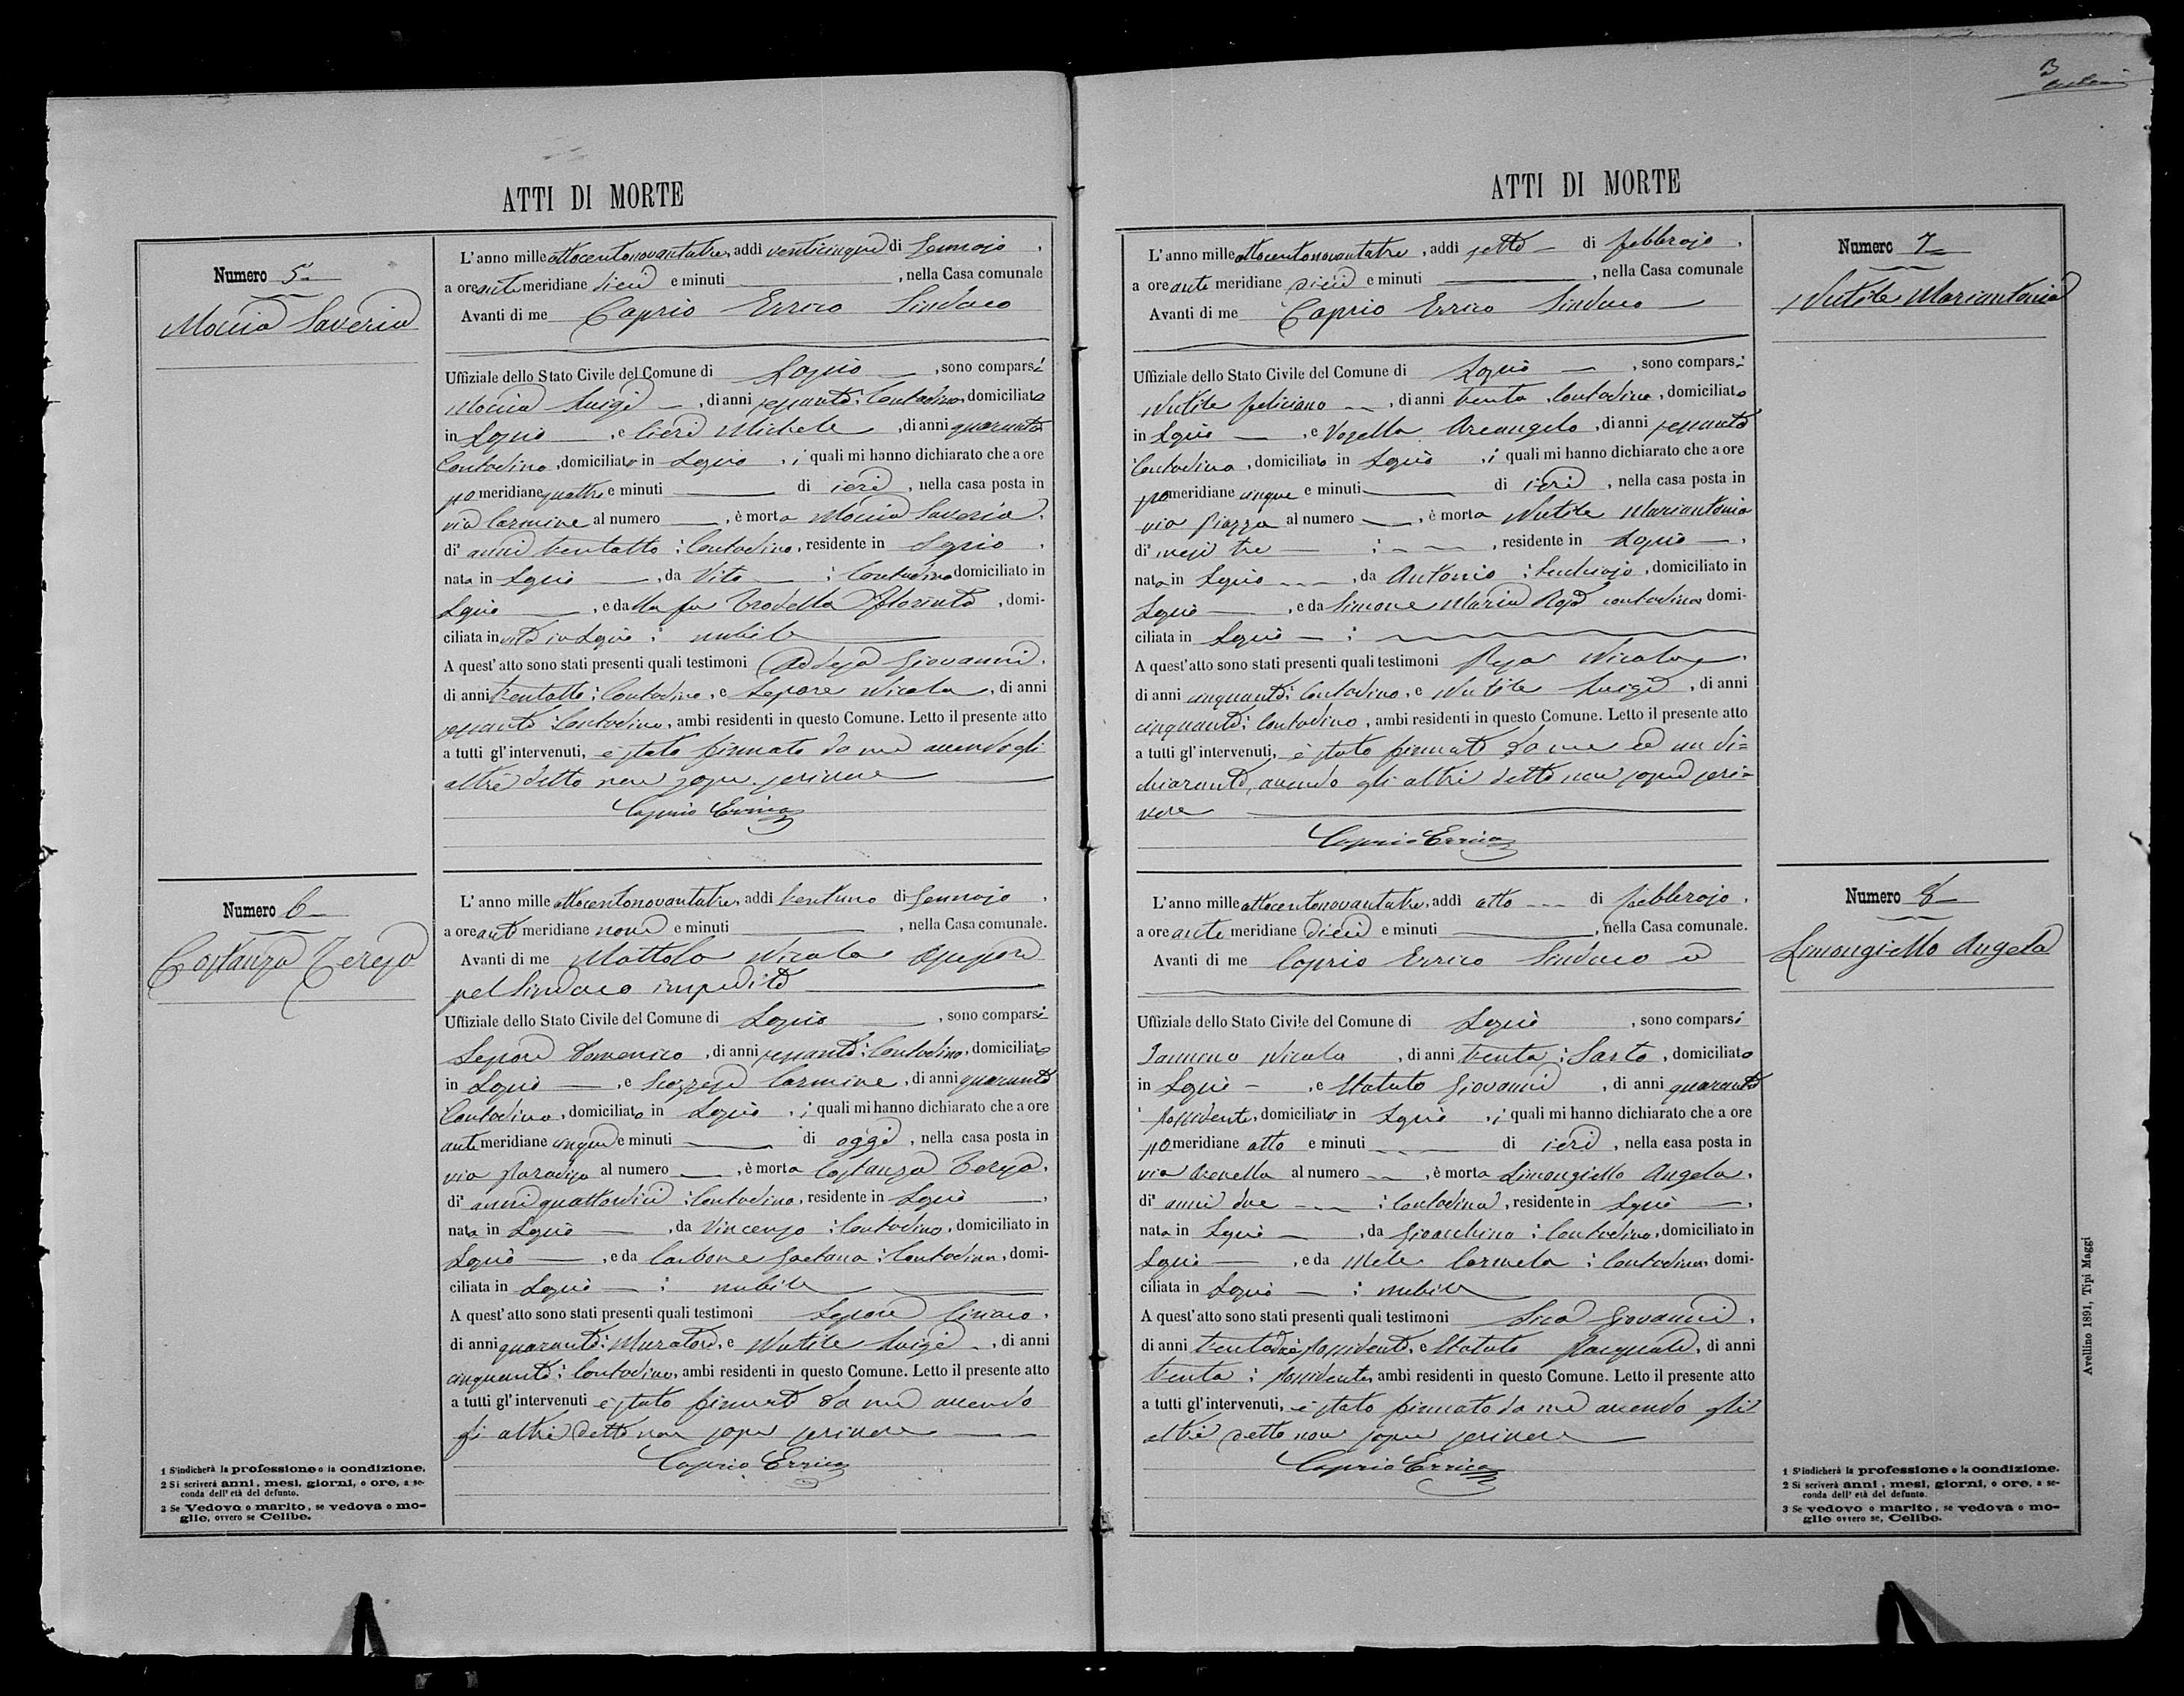 ATTI DI MORTE
Numero 5
Moccia Saveria
L'anno mille ottocentonovantatre, addì venticinque di Gennajo,
a ore ante meridiane dieci e minuti , nella Casa comunale
Avanti di me Caprio Errico Sindaco
Uffiziale dello Stato Civile del Comune di Lapio , sono comparsi
Moccia Luigi , di anni sessanta; Contadino domiciliato
in Lapio , e Cieri Michele , di anni quaranta
Contadino, domiciliato in Lapio , i quali mi hanno dichiarato che a ore
po meridiane quattro e minuti di ieri , nella casa posta in
via Carmine al numero , è morta Moccia Saveria,
di anni trentotto ; Contadina, residente in Lapio ,
nata in Lapio , da Vito ; Contadino domiciliato in
Lapio , e dalla fu Trodella , domi-
ciliata in vita in Lapio ; nubile
A quest'atto sono stati presenti quali testimoni Addesa Giovanni,
di anni trentotto; Contadino, e Lepore Nicola , di anni
sessanta ; Contadino, ambi residenti in questo Comune. Letto il presente atto
a tutti gl'intervenuti, è stato firmato da me avendo gli
altri detto non saper scrivere
Caprio Errico
Numero 6
Costanza Teresa
L'anno mille ottocentonovantatre, addì trentuno di Gennajo ,
a ore anti meridiane nove e minuti , nella Casa comunale.
Avanti di me Mottola Nicola Assessore
pel Sindaco impedito
Uffiziale dello Stato Civile del Comune di Lapio , sono comparsi
Lepore Domenico , di anni sessanta; Contadino, domiciliato
in Lapio , e Scozzese Carmine , di anni quaranta
Contadino, domiciliato in Lapio , i quali mi hanno dichiarato che a ore
anti meridiane cinque e minuti di oggi , nella casa posta in
via Paradiso al numero , è morta Costanza Teresa,
di anni quattordici ; Contadina, residente in Lapio ,
nata in Lapio , da Vincenzo ; Contadino, domiciliato in
Lapio , e da Carbone Gaetana ; Contadina, domi-
ciliata in Lapio ; nubile
A quest'atto sono stati presenti quali testimoni Lepore Ciriaco,
di anni quaranta; Muratore, e Nutile Luigi , di anni
cinquanta; Contadino, ambi residenti in questo Comune. Letto il presente atto
a tutti gl'intervenuti è stato firmato da me avendo
gli altri detto non saper scrivere
Caprio Errico
1 S'indicherà la professione o la condizione.
2 Si scriverà anni, mesi, giorni, o ore, a se-
conda dell'età del defunto.
3 Se Vedovo o marito, se vedova o mo-
glie, ovvero se Celibe.
3
ATTI DI MORTE
Numero 7
Nutile Mariantonia
L'anno mille ottocentonovantatre, addì sette di febbrajo ,
a ore ante meridiane dieci e minuti , nella Casa comunale
Avanti di me Caprio Errico Sindaco
Uffiziale dello Stato Civile del Comune di Lapio , sono comparsi
Nutile Feliciano , di anni trenta , Contadino, domiciliato
in Lapio , e Vozella Arcangelo , di anni sessanta
Contadino, domiciliato in Lapio , i quali mi hanno dichiarato che a ore
po meridiane cinque e minuti di ieri , nella casa posta in
via Piazza al numero , è morta Nutile Mariantonia
di mesi tre ; , residente in Lapio ,
nata in Lapio , da Antonio ; , domiciliato in
Lapio , e da Simone Maria Rosa contadina domi-
ciliata in Lapio ;
A quest'atto sono stati presenti quali testimoni Nicola ,
di anni cinquanta; Contadino, e Nutile Luigi , di anni
cinquanta; Contadino, ambi residenti in questo Comune. Letto il presente atto
a tutti gl'intervenuti, è stato firmato da me ed un di=
chiarante, avendo gli altri detto non saper scri-
vere
Caprio Errico
Numero 8
Limongiello Angela
L'anno mille ottocentonovantatre, addì otto di febbrajo ,
a ore ante meridiane dieci e minuti , nella Casa comunale.
Avanti di me Caprio Errico Sindaco ed
Uffiziale dello Stato Civile del Comune di Lapio , sono comparsi
Nicola , di anni trenta ; Sarto , domiciliato
in Lapio , e Statuto Giovanni , di anni quaranta
possidente, domiciliato in Lapio , i quali mi hanno dichiarato che a ore
po meridiane otto e minuti di ieri , nella casa posta in
via al numero , è morta Limongiello Angela ,
di anni due ; Contadina , residente in Lapio ,
nata in Lapio , da Gioacchino ; Contadino, domiciliato in
Lapio , e da Mele Carmela ; Contadina, domi-
ciliata in Lapio ; nubile
A quest'atto sono stati presenti quali testimoni Sica Giovanni ,
di anni possidente, e Statuto Pasquale, di anni
trenta ; possidente, ambi residenti in questo Comune. Letto il presente atto
a tutti gl'intervenuti, è stato firmato da me avendo gli
altri detto non saper scrivere
Caprio Errico
1 S'indicherà la professione o la condizione.
2 Si scriverà anni, mesi, giorni, o ore, a se-
conda dell'età del defunto.
3 Se vedovo o marito, se vedova o mo-
glie ovvero se, Celibe.
Avellino 1891, Tipi Maggi